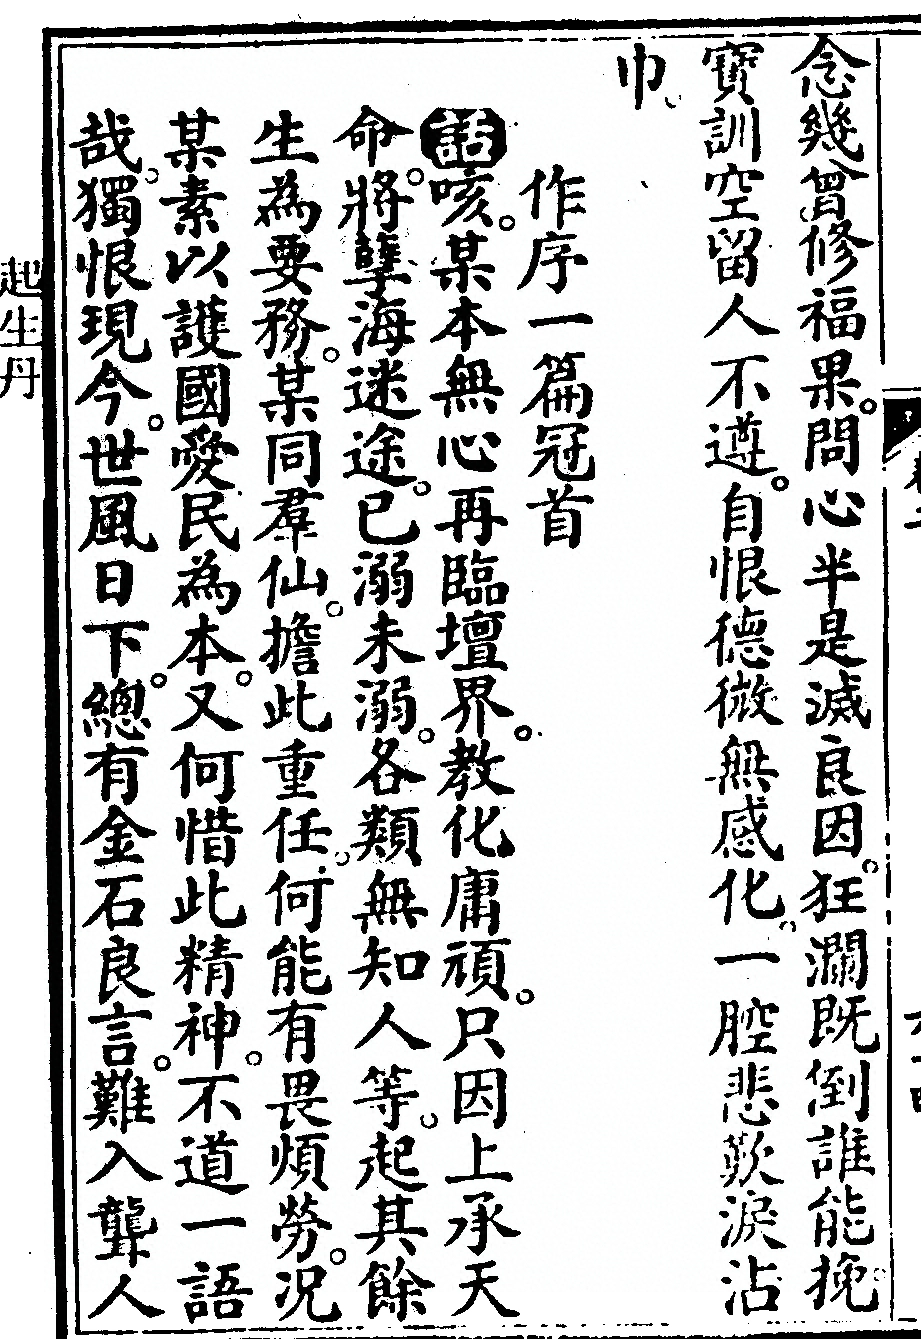 念幾曾修福果。問心半是滅良因。狂瀾既倒誰能挽
寶訓空留人不遵。自恨德微無感化。一腔悲歎淚沾
巾。
作序一篇冠首
話咳。某本無心再臨壇界。教化庸頑。只因上承天
命。將孽海迷途。已溺未溺。各類無知人等。起其餘
生為要務。某同羣仙。擔此重任。何能有畏煩勞。况
某素以護國愛民為本。又何惜此精神。不道一語
哉。獨恨現今。世風日下。總有金石良言。難入聾人
起生丹